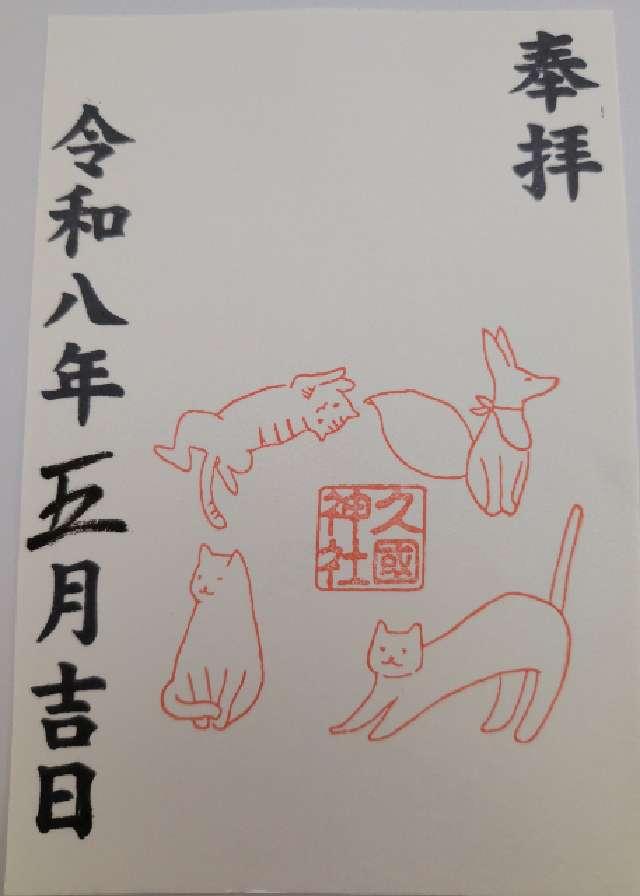 奉拝
久國
神社
令和八年五月吉日